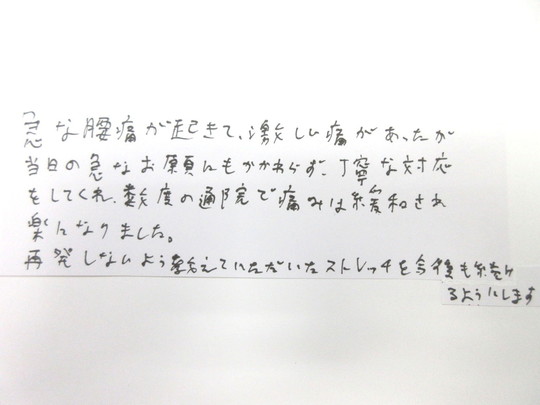 急な腰痛が起きて、激しい痛があったが
当日の急なお願にもかかわらず、丁寧な対応
をしてくれ、数度の通院で痛みは緩和され
楽になりました。
再発しないよう教えていただいたストレッチを今後も続け
るようにします